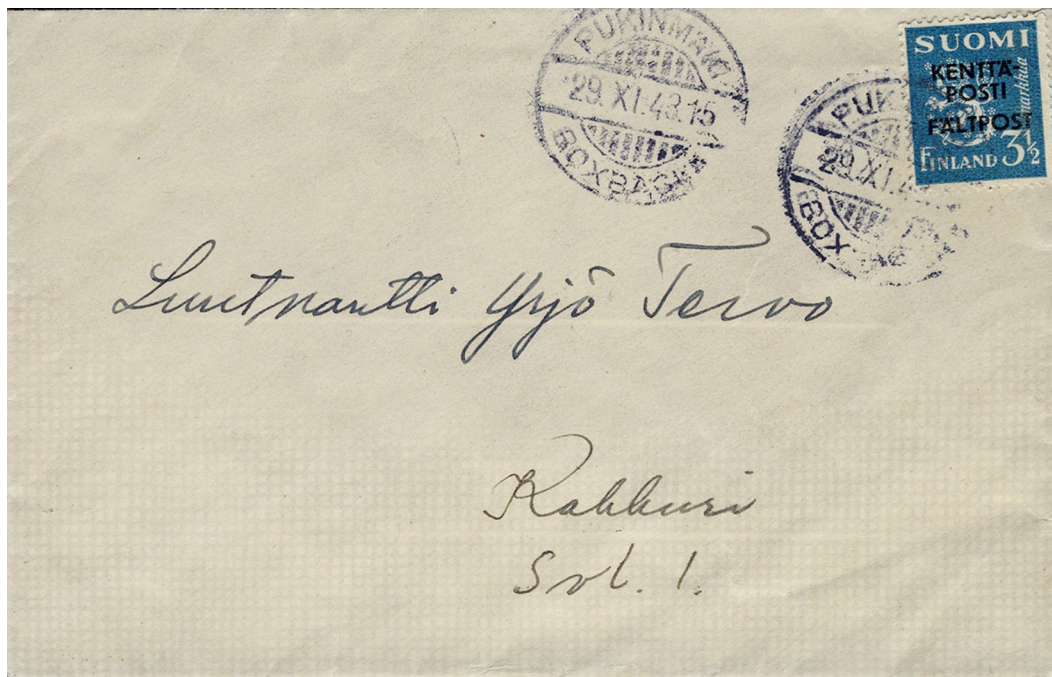 PUKINMÄKI
29.XI.43.15
BOXBACKA
PUK
29.XI.4
BOX
SUOMI
KENTTÄ-
POSTI
FÄLTPOST
markkaa
FINLAND 3½
Luutnantti Yrjö Tervo
Kakkuri
Svl. 1.